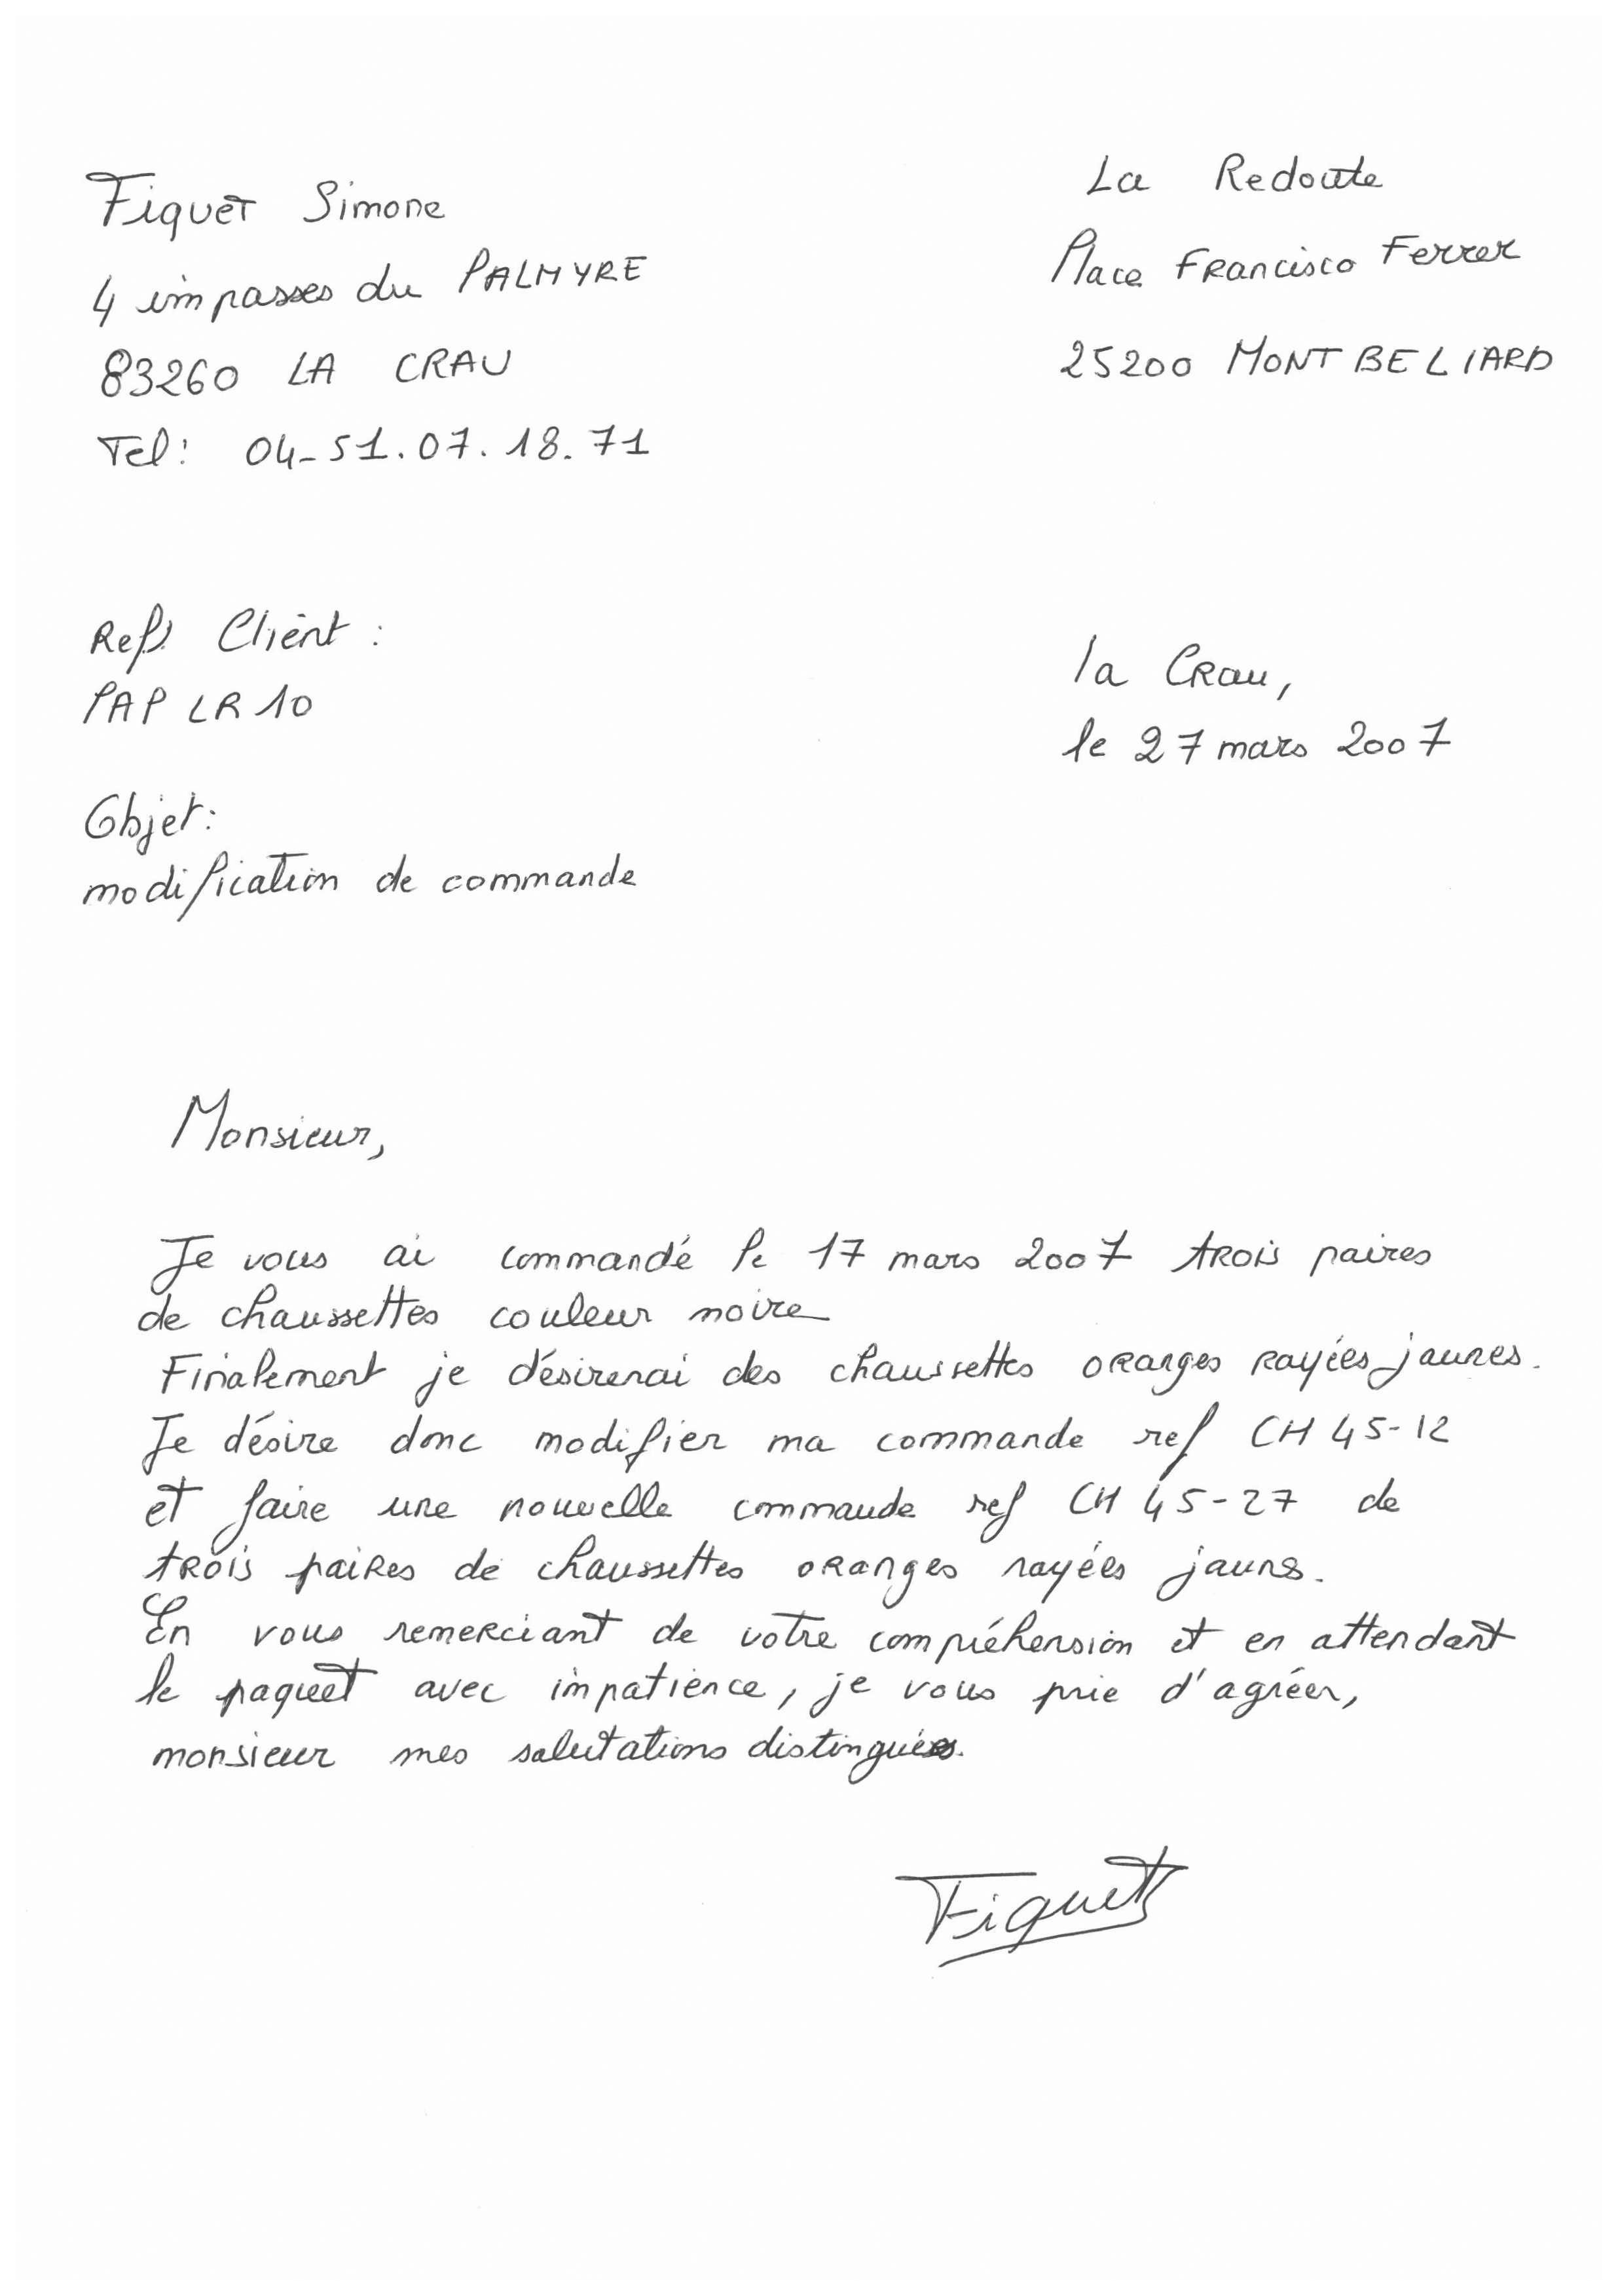 Fiquet Simone
4 impasses du PALMYRE
83260 LA CRAU
Tel: 04-51.07.18.71
La Redoute
Place Francisco Ferrer
25200 MONTBELIARD
Ref Client :
PAP LR 10
la Crau,
le 27 mars 2007
Objet:
modification de commande
Monsieur,
Je vous ai commandé le 17 mars 2007 trois paires
de chaussettes couleur noire
Finalement je désirerai des chaussettes oranges rayées jaunes.
Je désire donc modifier ma commande ref CH 45-12
et faire une nouvelle commande ref CH 45-27 de
trois paires de chaussettes oranges rayées jaunes.
En vous remerciant de votre compréhension et en attendant
le paquet avec impatience, je vous prie d'agréer,
monsieur mes salutations distinguées.
Fiquet